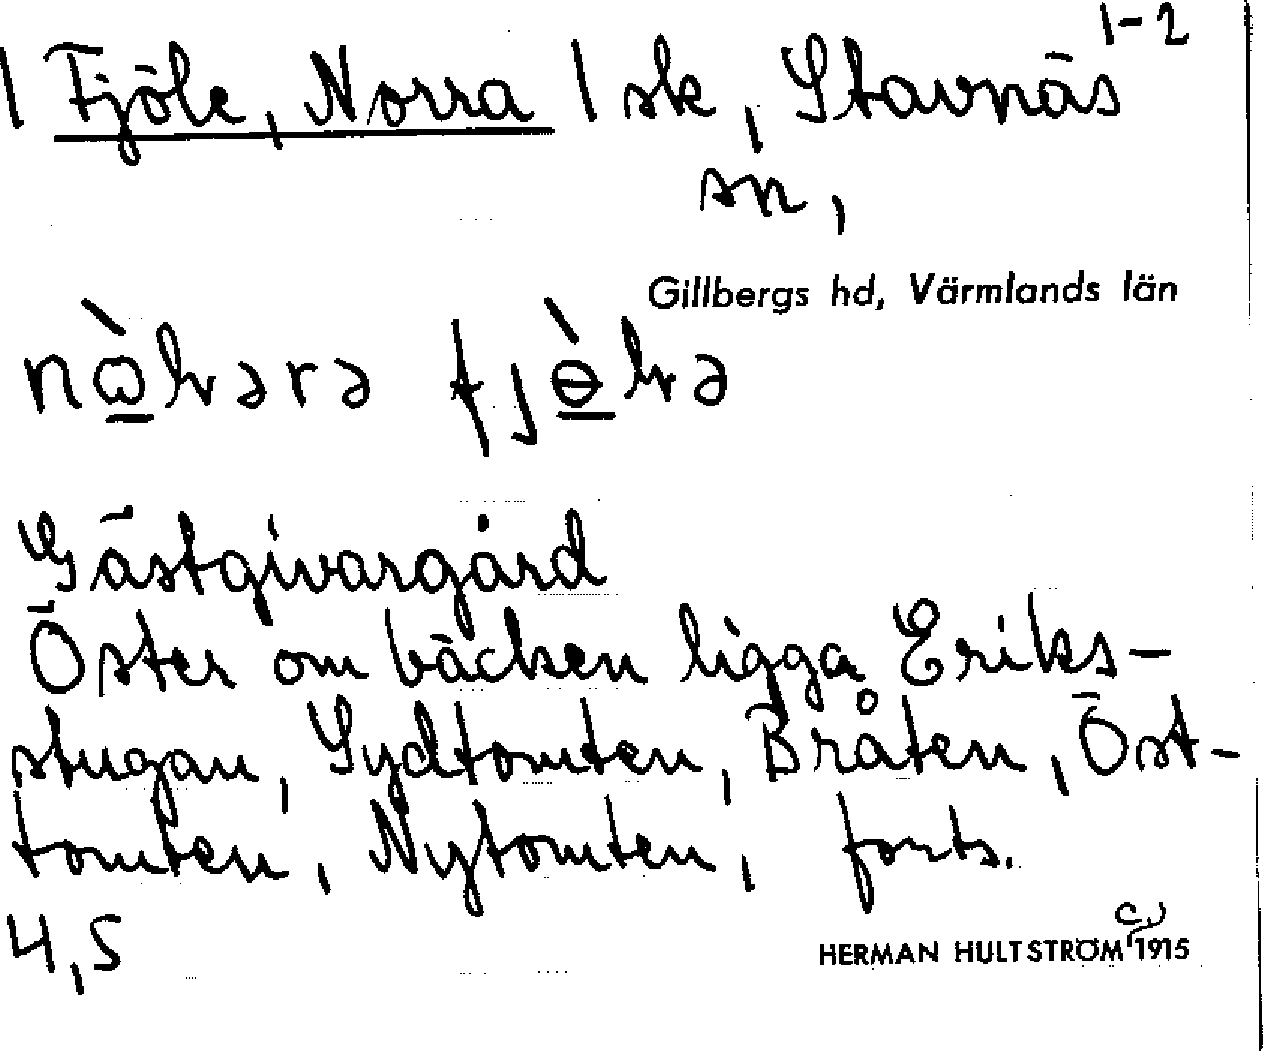 1-2
| Fjöle, Norra | sk, Stavnäs
sn,
Gillbergs hd, Värmlands län
Gästgivargård
Öster om bäcken ligga Eriks-
stugan, Sydtomten, Bråten, Öst-
tomten, Nytomten, forts.
4,5
HERMAN HULTSTRÖM 1915